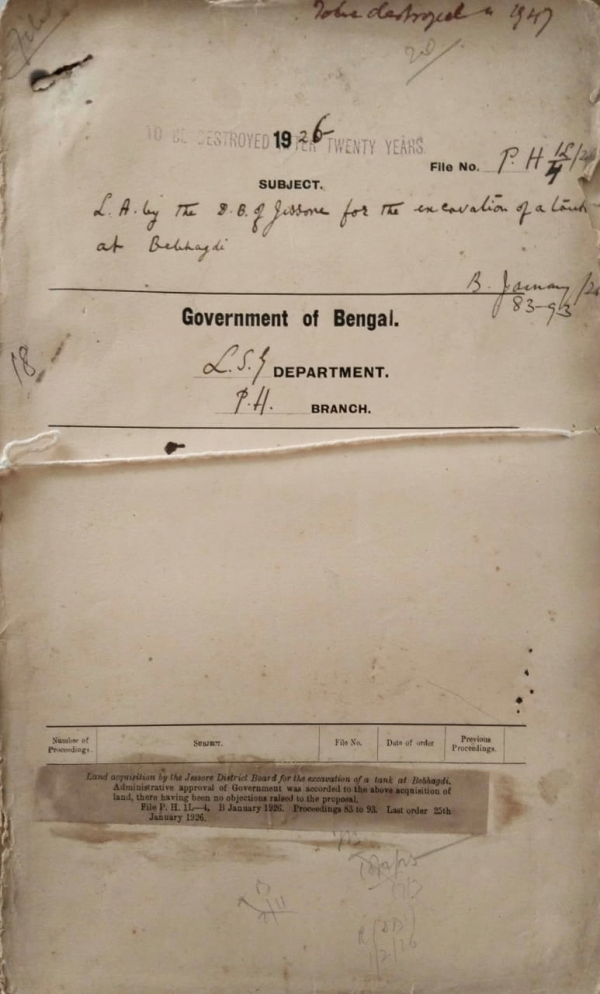 To be destroyed in 1947
TO BE DESTROYED AFTER TWENTY YEARS.
1926
File No. P. H 1L/4
SUBJECT.
L. A. by the D. B. of Jessore for the excavation of a tank
at Bebhagdi
B. January /26
83-93
Government of Bengal.
18
L. S. G DEPARTMENT.
P.H. BRANCH.
Number of Proceedings. SUBJECT. File No. Date of order Previous Proceedings.
Land acquisition by the Jessore District Board for the excavation of a tank at Bebhagdi.
Administrative approval of Government was accorded to the above acquisition of
land, there having been no objections raised to the proposal.
File P. H. 1L—4, B January 1926. Proceedings 83 to 93. Last order 25th
January 1926.